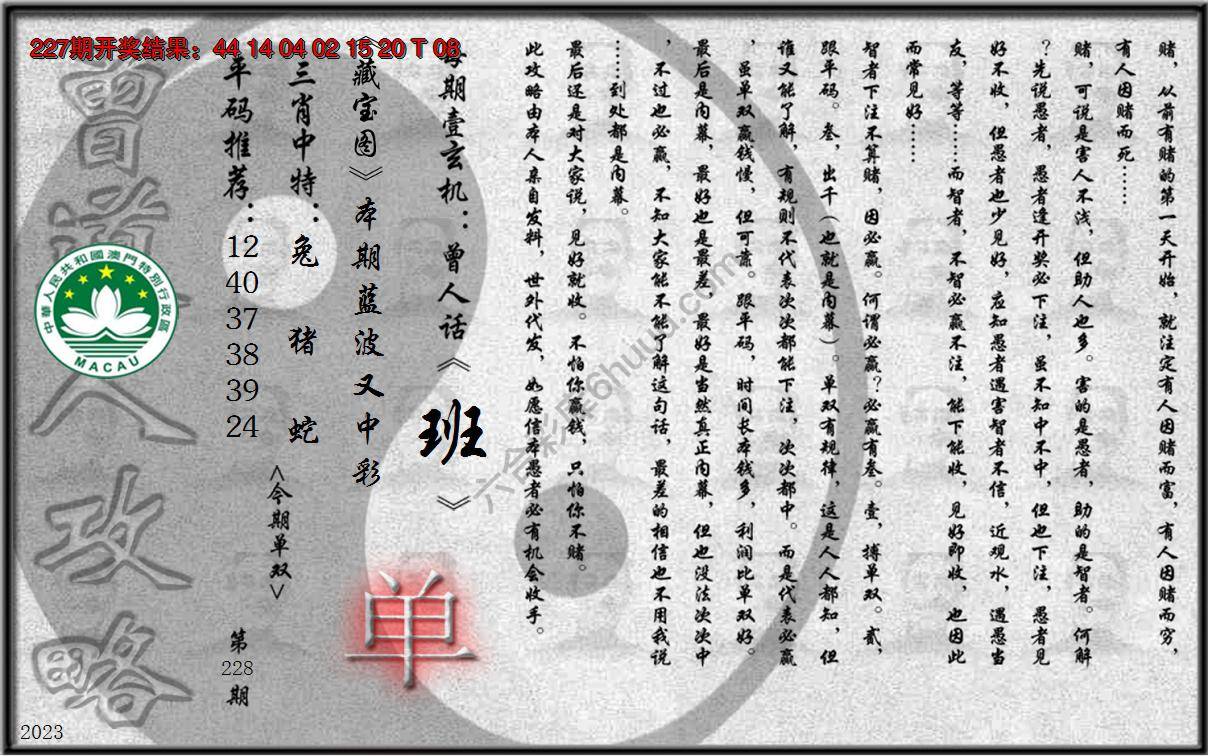 227期开奖结果：44 14 04 02 15 20 T 08
赌，从前有赌的第一天开始，就注定有人因赌而富，有人因赌而穷，
有人因赌而死……
赌，可说是害人不浅，但助人也多。害的是愚者，助的是智者。何解
？先说愚者，愚者逢开奖必下注，虽不知中不中，但也下注，愚者见
好不收，但愚者也少见好，应知愚者遇害智者不信，近观水，遇愚当
友，等等……而智者，不智必赢不注，能下能收，见好即收，也因此
而常见好……
智者下注不算赌，因必赢。何谓必赢？必赢有叁。壹，搏单双。贰，
跟平码。叁，出千（也就是内幕）。单双有规律，这是人人都知，但
谁又能了解，有规则不代表次次都能下注，次次都中。而是代表必赢
，虽单双赢钱慢，但可靠。跟平码，时间长本钱多，利润比单双好。
最后是内幕，最好也是最差，最好是当然真正内幕，但也没法次次中
，不过也必赢，不知大家能不能了解这句话，最差的相信也不用我说
……到处都是内幕。
最后还是对大家说，见好就收。不怕你赢钱，只怕你不赌。
此攻略由本人亲自发料，世外代发，如愿信本愚者必有机会收手。
每期壹玄机：曾人话《班》
《藏宝图》本期蓝波又中彩
三肖中特：兔 猪 蛇
平码推荐：
12
40
37
38
39
24
<今期单双>
单
第
228
期
曾道人攻略
中華人民共和國澳門特別行政區
MACAU
六合彩库6huuu.com
2023